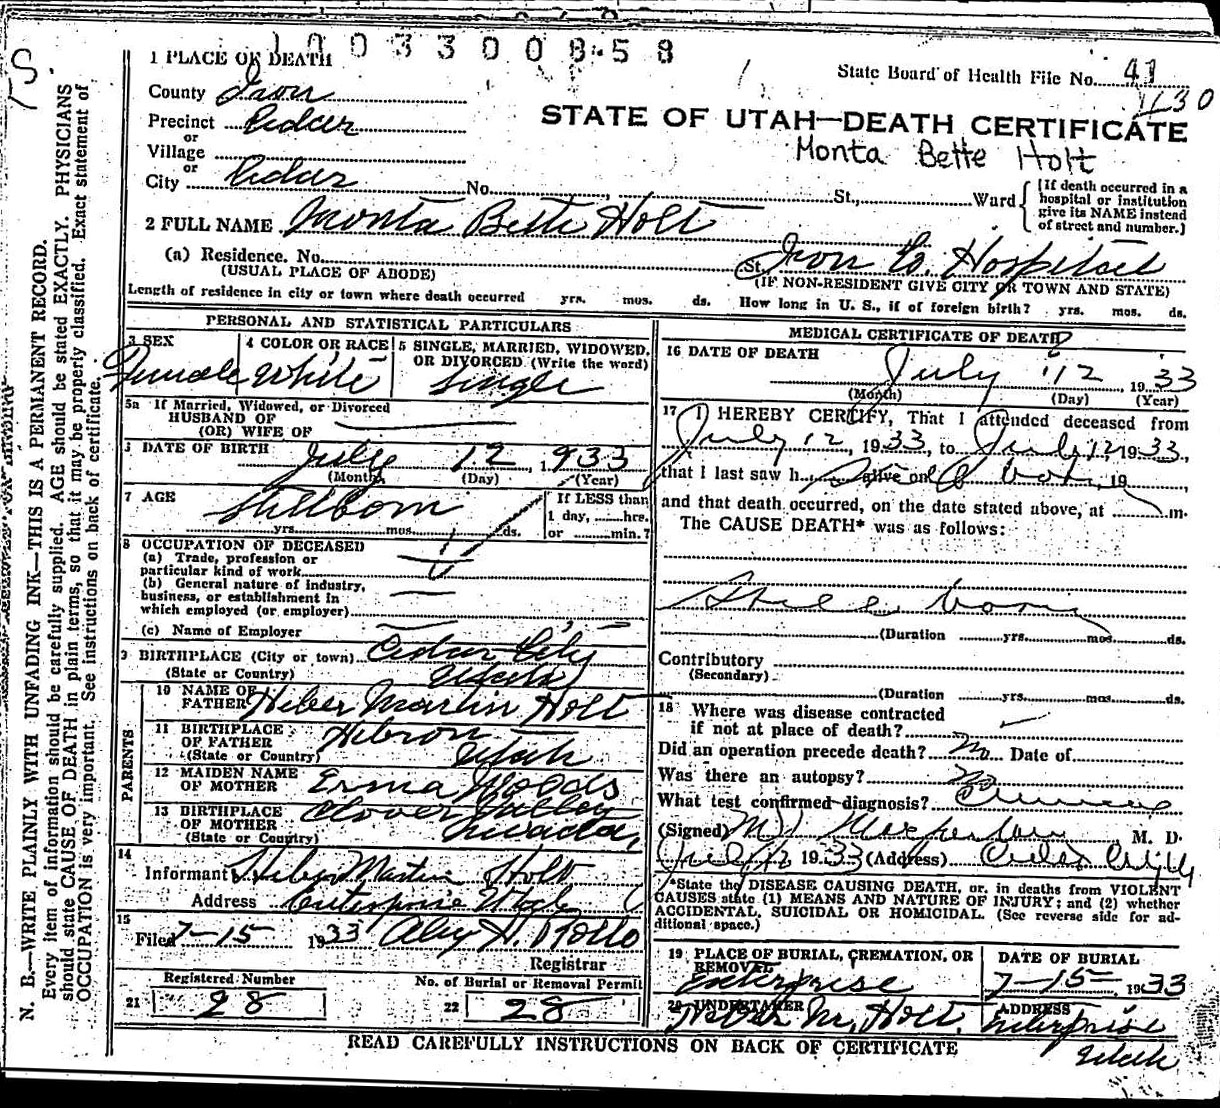 1003300858
1 PLACE OF DEATH
State Board of Health File No. 41
1130
County Iron
STATE OF UTAH—DEATH CERTIFICATE
Precinct Cedar
Monta Bette Holt
or
Village
or
City Cedar No. , St., Ward
[If death occurred in a
hospital or institution
give its NAME instead
of street and number.]
2 FULL NAME Monta Bette Holt
(a) Residence. No. St. Iron Co. Hospital
(USUAL PLACE OF ABODE) (IF NON-RESIDENT GIVE CITY OR TOWN AND STATE)
Length of residence in city or town where death occurred yrs. mos. ds. How long in U. S., if of foreign birth? yrs. mos. ds.
PERSONAL AND STATISTICAL PARTICULARS
3 SEX
Female
4 COLOR OR RACE
White
5 SINGLE, MARRIED, WIDOWED,
OR DIVORCED (Write the word)
Single
5a If Married, Widowed, or Divorced
HUSBAND OF
(OR) WIFE OF
DATE OF BIRTH
July 12, 1933
(Month) (Day) (Year)
7 AGE
Stillborn
yrs. mos. ds.
If LESS than
1 day, hrs.
or min.?
8 OCCUPATION OF DECEASED
(a) Trade, profession or
particular kind of work
(b) General nature of industry,
business, or establishment in
which employed (or employer)
(c) Name of Employer
9 BIRTHPLACE (City or town) Cedar City
(State or Country) Utah
PARENTS
10 NAME OF
FATHER Heber Martin Holt
11 BIRTHPLACE
OF FATHER Hebron
(State or Country) Utah
12 MAIDEN NAME
OF MOTHER Erma Woods
13 BIRTHPLACE
OF MOTHER Clover Valley
(State or Country) Nevada
14
Informant Heber Martin Holt
Address Enterprise Utah
15
Filed 7-15 1933 H. Rollo
Registrar
Registered Number
21 28
No. of Burial or Removal Permit
22 28
MEDICAL CERTIFICATE OF DEATH
16 DATE OF DEATH
July 12 1933
(Month) (Day) (Year)
17 I HEREBY CERTIFY, That I attended deceased from
July 12, 1933, to July 12 1933,
that I last saw h alive on , 19 ,
and that death occurred, on the date stated above, at m.
The CAUSE DEATH* was as follows:
Still born
(Duration yrs. mos. ds.
Contributory
(Secondary)
(Duration yrs. mos. ds.
18 Where was disease contracted
if not at place of death?
Did an operation precede death? No Date of
Was there an autopsy? No
What test confirmed diagnosis?
(Signed) M. D.
July 12, 1933 (Address) Cedar City
*State the DISEASE CAUSING DEATH, or, in deaths from VIOLENT
CAUSES state (1) MEANS AND NATURE OF INJURY; and (2) whether
ACCIDENTAL, SUICIDAL OR HOMICIDAL. (See reverse side for ad-
ditional space.)
19 PLACE OF BURIAL, CREMATION, OR
REMOVAL
Enterprise
DATE OF BURIAL
7-15-, 1933
20 UNDERTAKER
Heber M. Holt.
ADDRESS
Enterprise
Utah
READ CAREFULLY INSTRUCTIONS ON BACK OF CERTIFICATE
S.
N. B.—WRITE PLAINLY WITH UNFADING INK—THIS IS A PERMANENT RECORD.
Every item of information should be carefully supplied. AGE should be stated EXACTLY. PHYSICIANS
should state CAUSE OF DEATH in plain terms, so that it may be properly classified. Exact statement of
OCCUPATION is very important. See instructions on back of certificate.